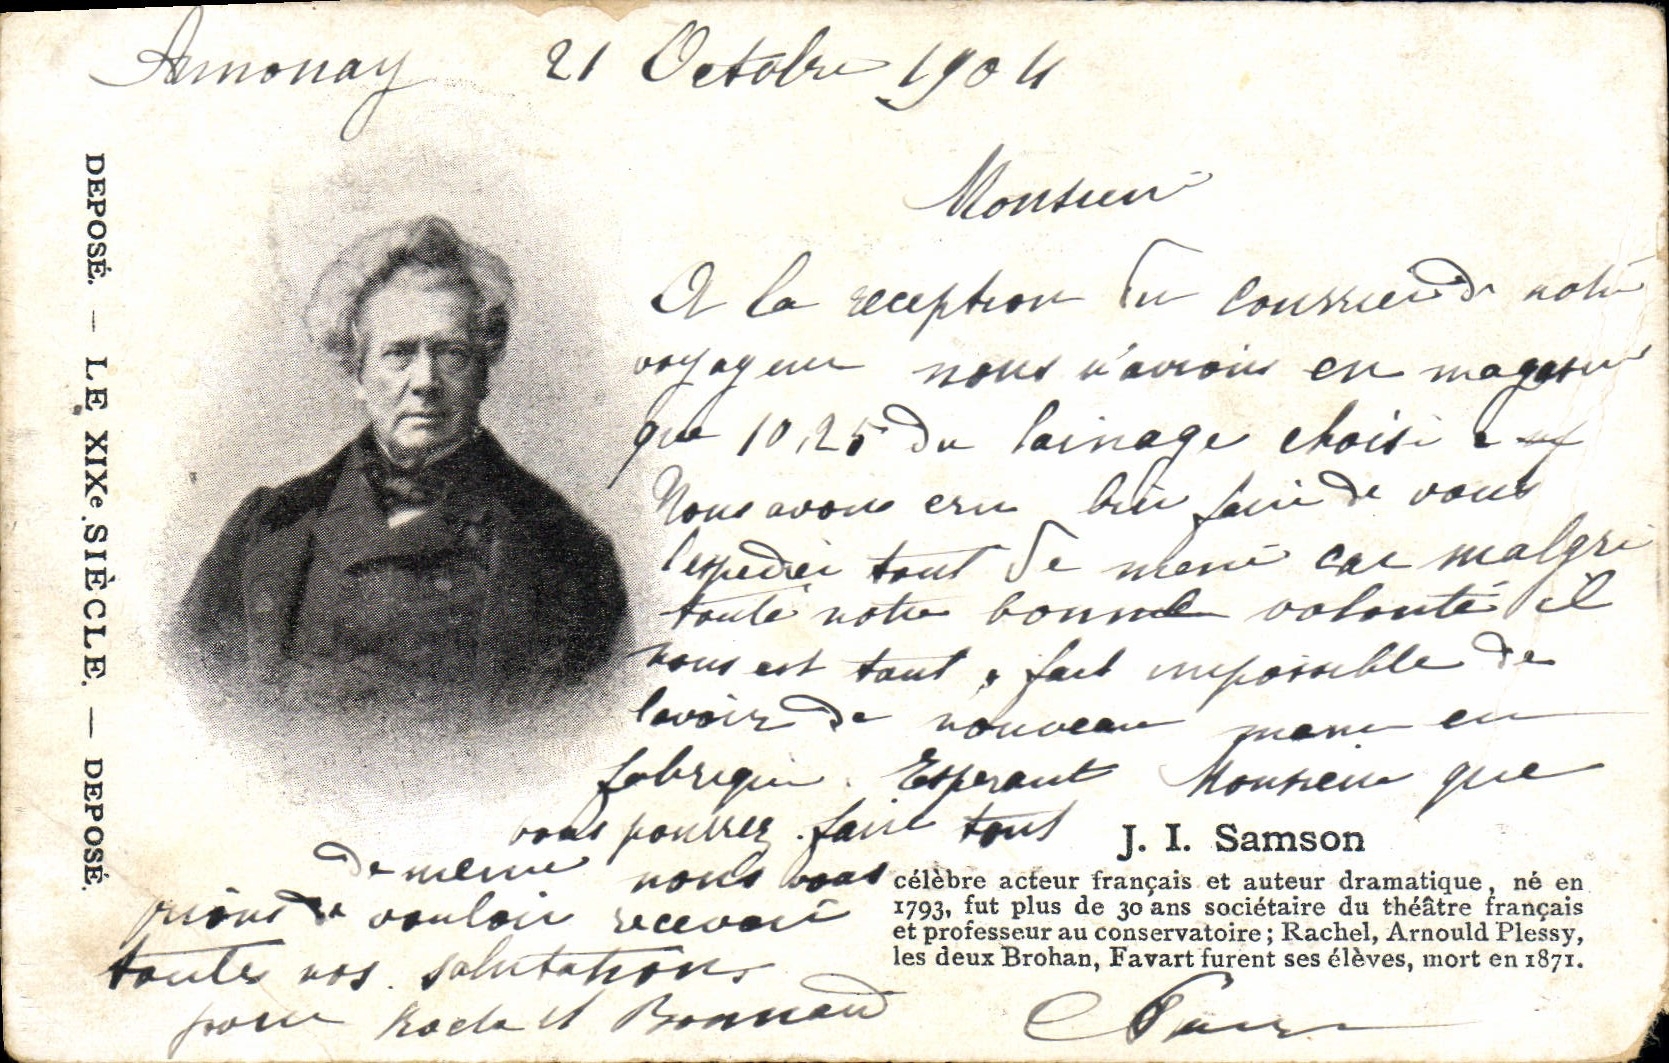 Annonay 21 Octobre 1904
Monsieur
A la reception du courrier de notre
voyageur nous n'avions en magasin
que 10,25 du lainage choisi
Nous avons cru bien faire de vous
l'expedier tout de meme car malgre
toute notre bonne volonté il
nous est tout a fait impossible de
lavoir de nouveau meme en
fabrique. Esperant Monsieur que
vous pourrez faire tout
de meme nous vous
prions de vouloir recevoir
toutes nos salutations
pour et Bonnaud
DEPOSÉ. — LE XIXe SIÈCLE. — DEPOSÉ.
J. I. Samson
célèbre acteur français et auteur dramatique, né en
1793, fut plus de 30 ans sociétaire du théâtre français
et professeur au conservatoire; Rachel, Arnould Plessy,
les deux Brohan, Favart furent ses élèves, mort en 1871.